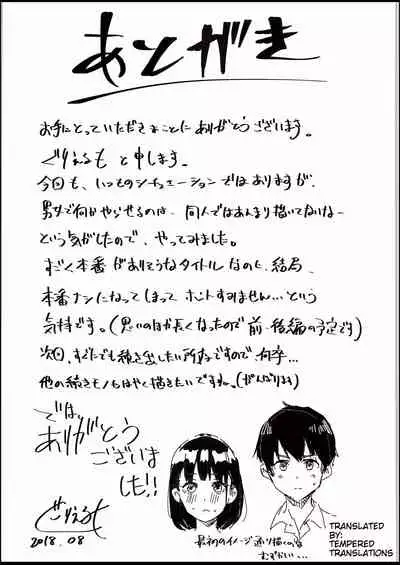 あとがき
お手にとっていただきまことにありがとうございます。
ぐりえるも と申します。
今回も、いつものシチュエーションではありますが、
男女で何かやらせるのは、同人ではあんまり描いてないなー
という気がしたので、やってみました。
すごく本番がありそうなタイトルなのに、結局、
本番ナシになってしまって ホントすみません…という
気持です。(思いのほか長くなったので前・後編の予定です)
次回、すぐにでも続き出したい所存ですので、何卒…
他の続きモノもはやく描きたいですね。(がんばります)
では、
ありがとう
ございま
した!!
ぐりえるも
2018.08
最初のイメージ通り描くのは
むずかしい…
TRANSLATED
BY:
TEMPERED
TRANSLATIONS